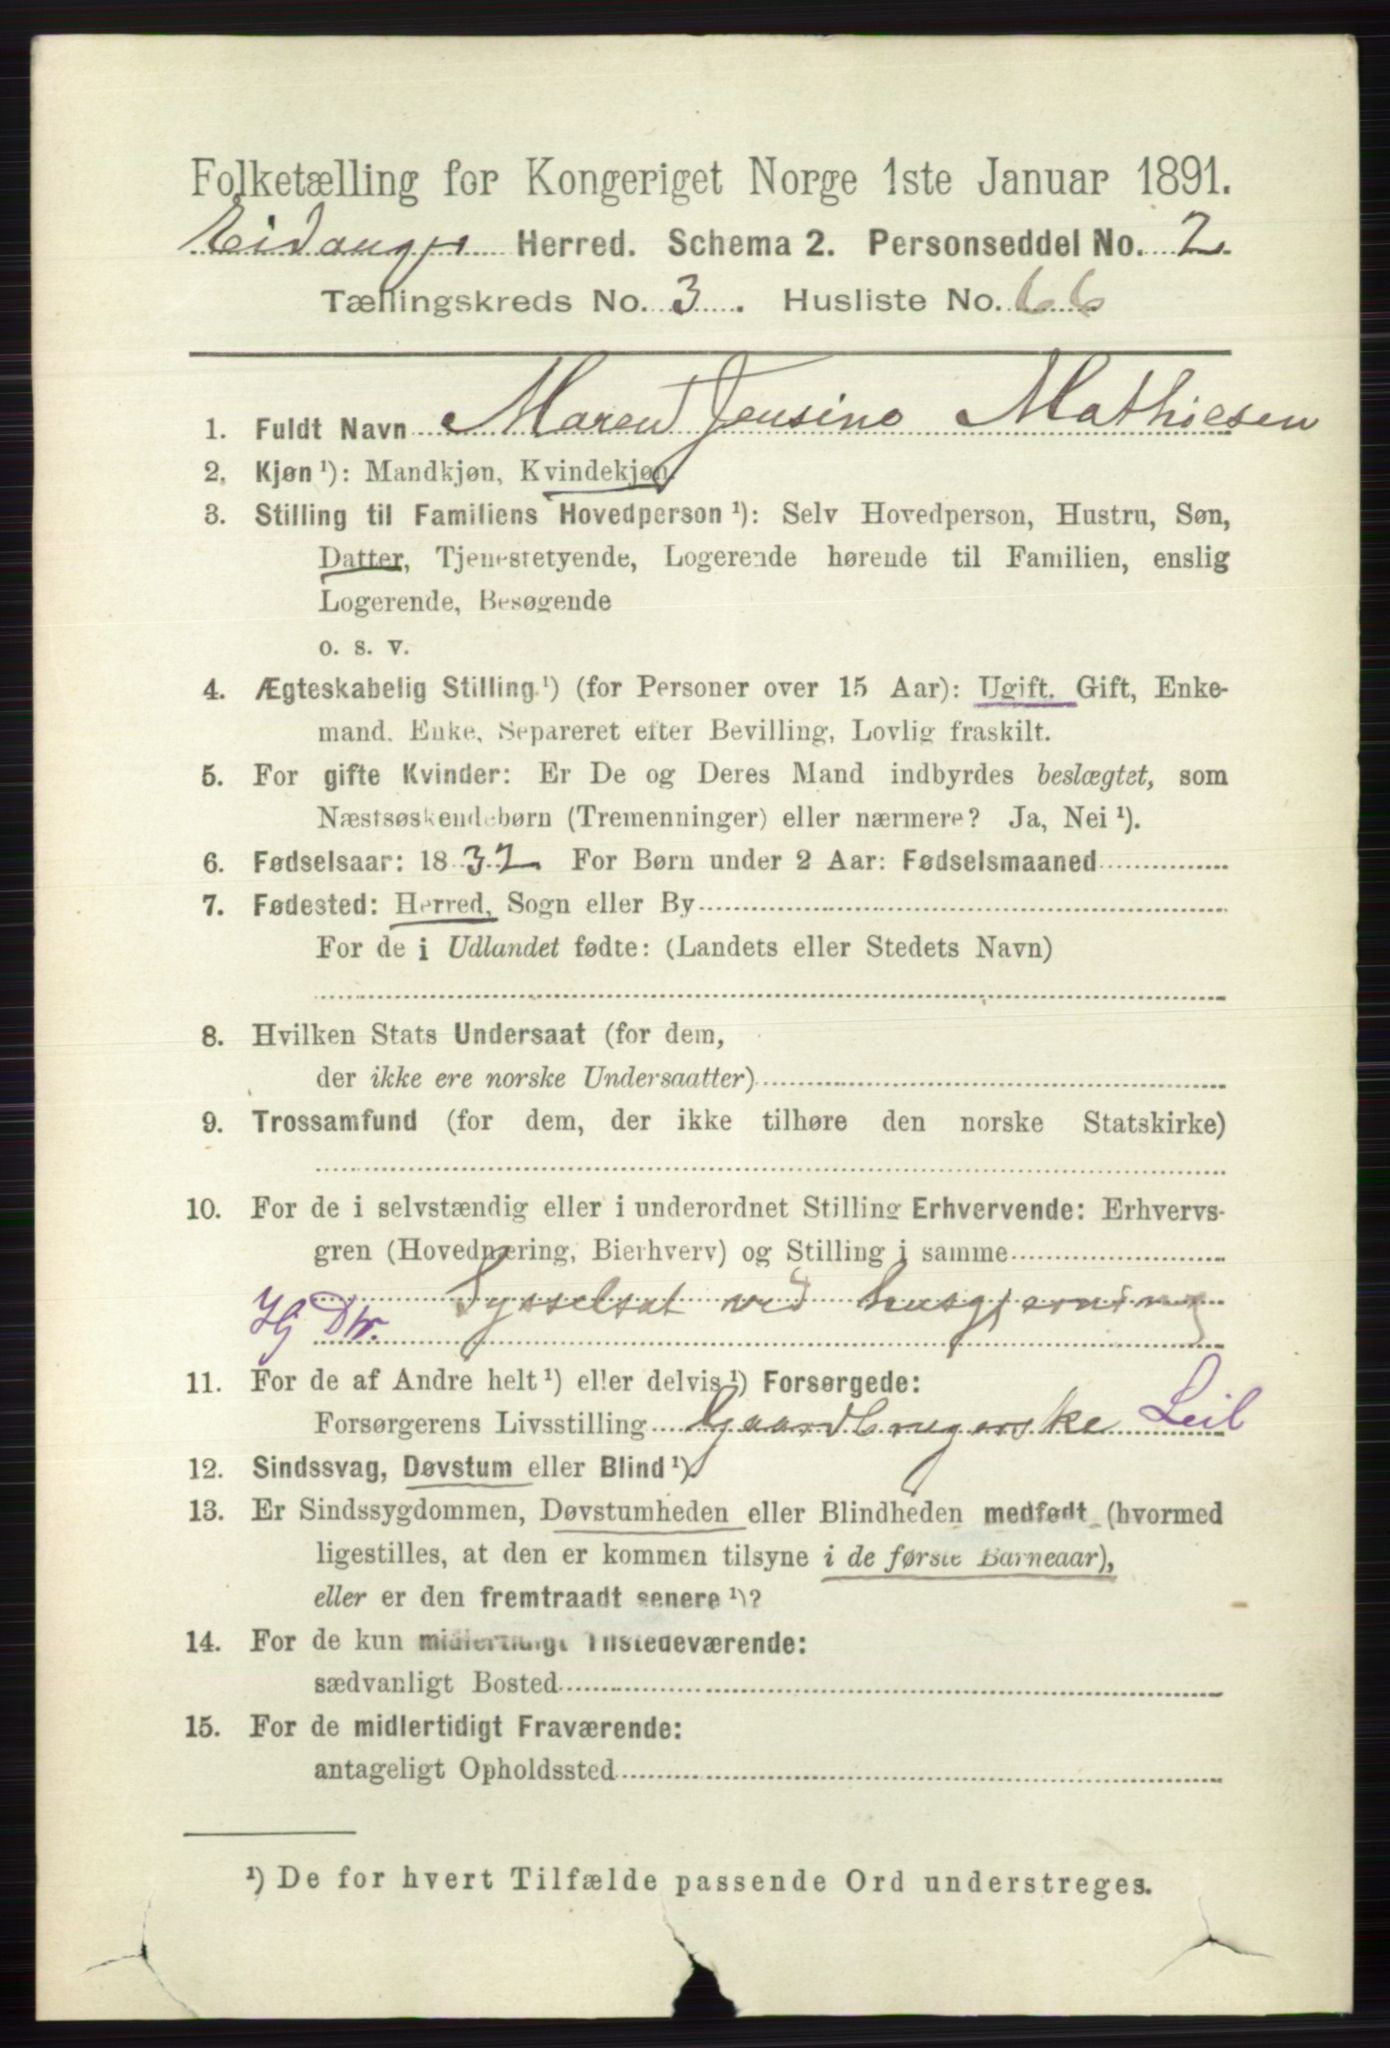 Folketælling for Kongeriget Norge 1ste Januar 1891.
Eidanger Herred. Schema 2. Personseddel No. 2
Tællingskreds No. 3. Husliste No. 66
1. Fuldt Navn Maren Jensine Mathiesen
2. Kjøn ¹): Mandkjøn, Kvindekjøn.
3. Stilling til Familiens Hovedperson ¹): Selv Hovedperson, Hustru, Søn,
Datter, Tjenestetyende, Logerende hørende til Familien, enslig
Logerende, Besøgende
o. s. v.
4. Ægteskabelig Stilling.¹) (for Personer over 15 Aar): Ugift. Gift, Enke-
mand. Enke, Separeret efter Bevilling, Lovlig fraskilt.
5. For gifte Kvinder: Er De og Deres Mand indbyrdes beslægtet, som
Næstsøskendebørn (Tremenninger) eller nærmere? Ja, Nei ¹).
6. Fødselsaar: 1832 For Børn under 2 Aar: Fødselsmaaned
7. Fødested: Herred, Sogn eller By
For de i Udlandet fødte: (Landets eller Stedets Navn)
8. Hvilken Stats Undersaat (for dem,
der ikke ere norske Undersaatter)
9. Trossamfund (for dem, der ikke tilhøre den norske Statskirke)
10. For de i selvstændig eller i underordnet Stilling Erhvervende: Erhvervs-
gren (Hovednæring, Bierhverv) og Stilling i samme
Sysselsat ved husgjerning
Hj Dtr.
11. For de af Andre helt ¹) eller delvis ¹) Forsørgede:
Forsørgerens Livsstilling Gaardbrugerske Leil
12. Sindssvag, Døvstum eller Blind ¹).
13. Er Sindssygdommen, Døvstumheden eller Blindheden medfødt (hvormed
ligestilles, at den er kommen tilsyne i de første Barneaar),
eller er den fremtraadt senere ¹)?
14. For de kun midlertidigt Tilstedeværende:
sædvanligt Bosted
15. For de midlertidigt Fraværende:
antageligt Opholdssted
¹) De for hvert Tilfælde passende Ord understreges.